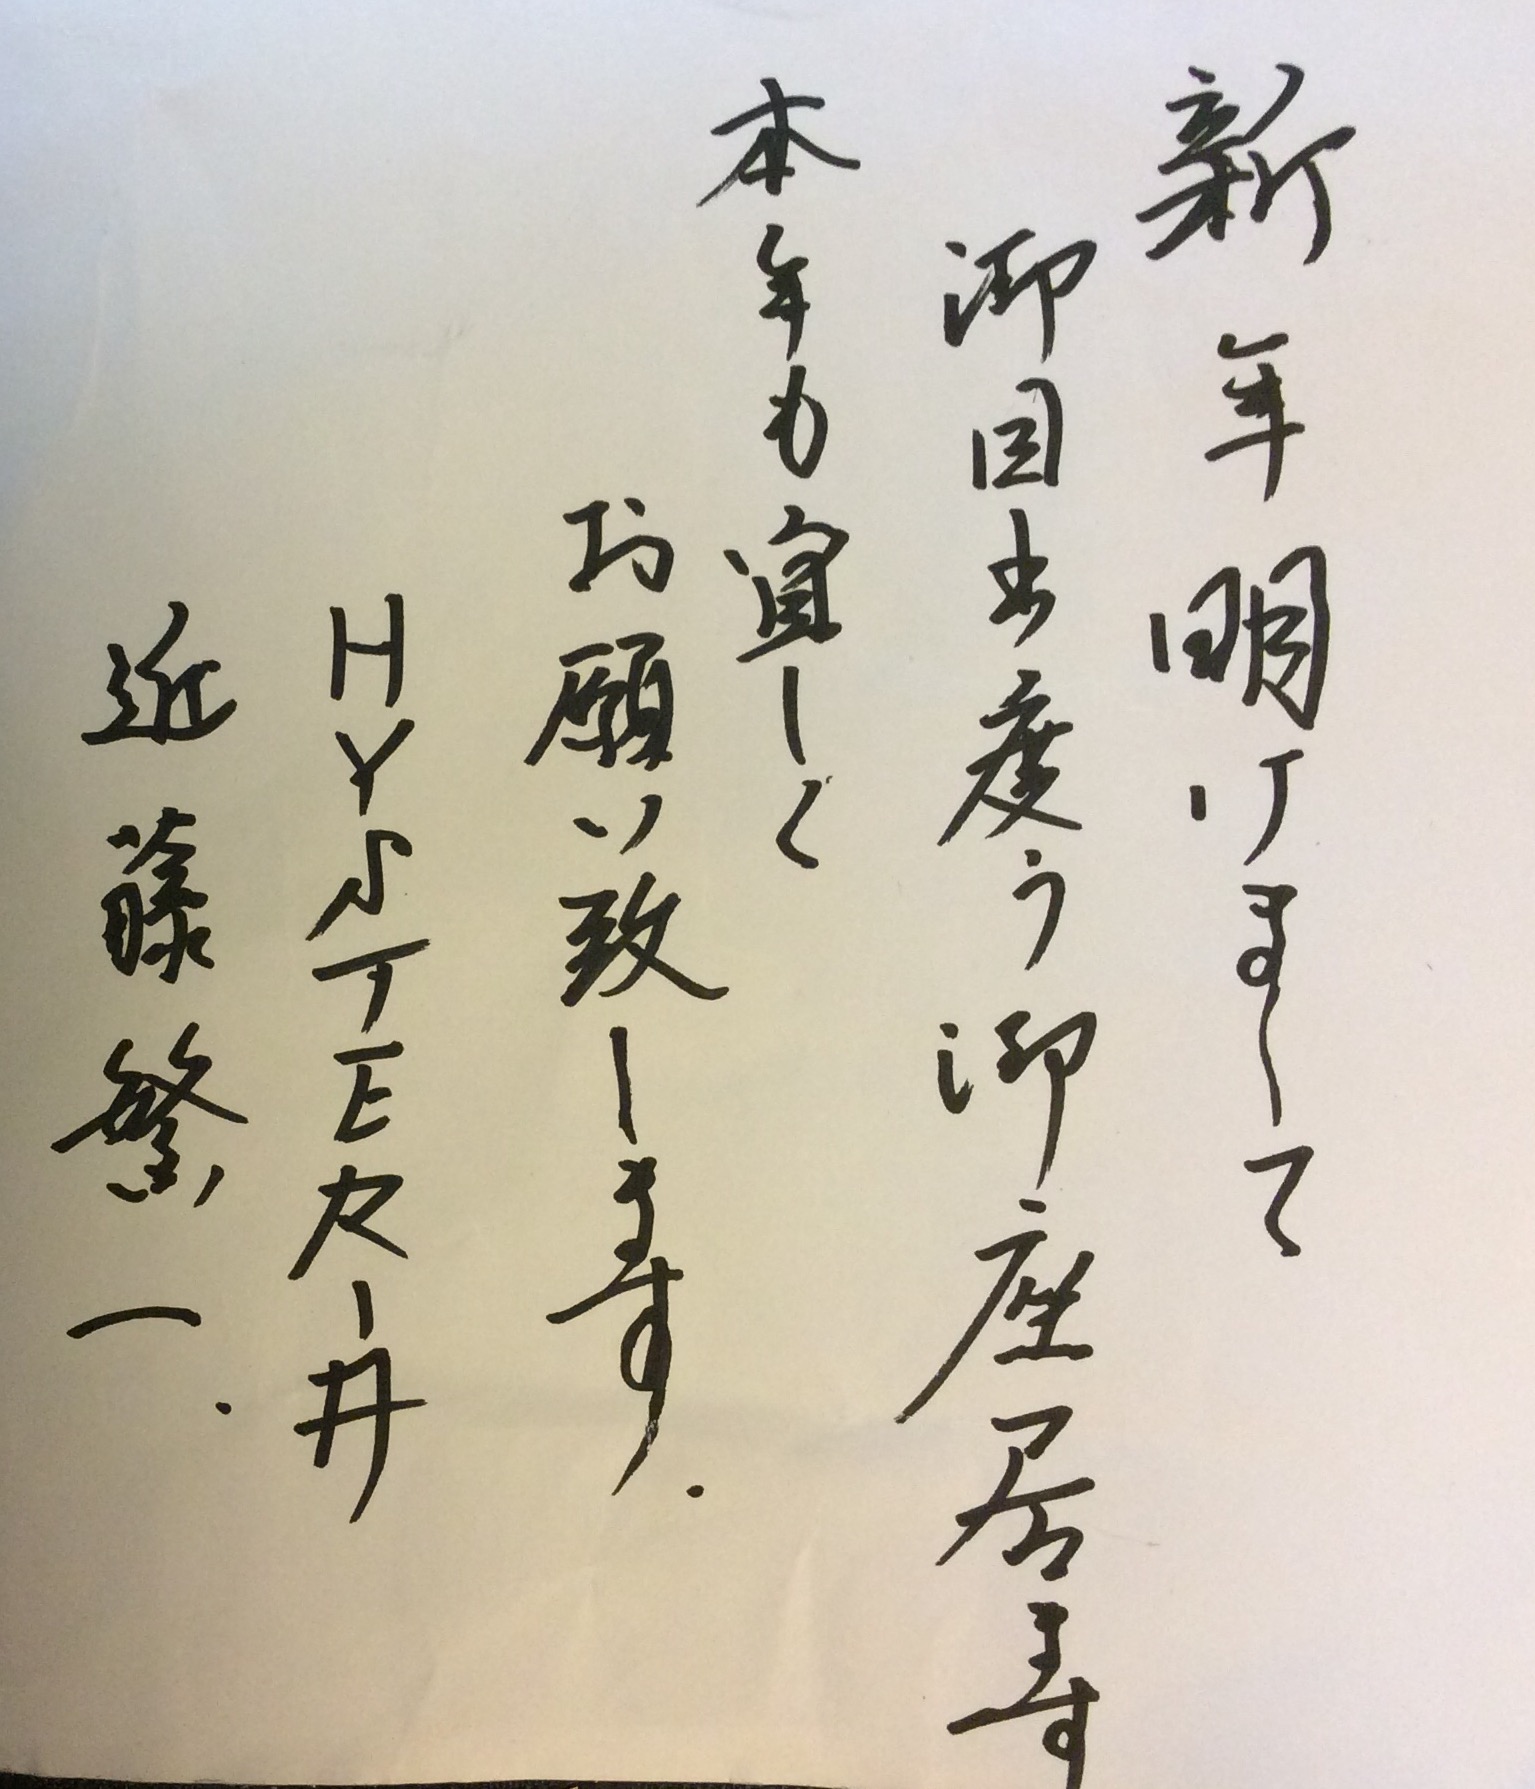 新年明けまして
御目出度う御座居ます
本年も宜しく
お願い致します.
HYSTERカー井
近藤繁一.